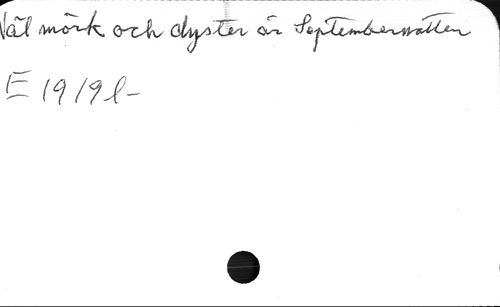 Väl mörk och dyster är Septembernatten
E 1919 l-